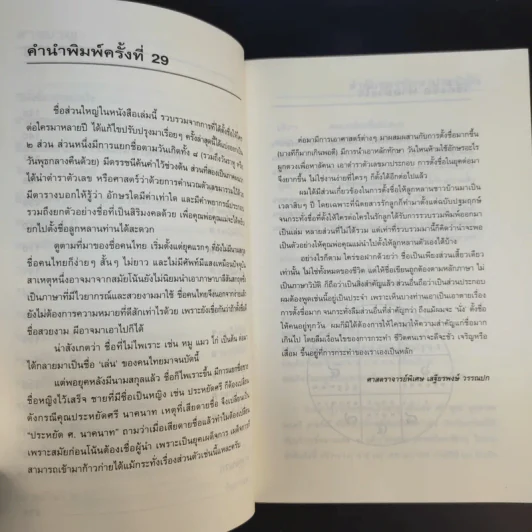 คำนำพิมพ์ครั้งที่ 29
ชื่อส่วนใหญ่ในหนังสือเล่มนี้ รวบรวมจากการที่ได้ตั้งชื่อให้ใคร
ต่อใครมาหลายปี ได้แก้ไขปรับปรุงมาเรื่อยๆ ครั้งล่าสุดนี้ได้แบ่งออกเป็น
๒ ส่วน ส่วนหนึ่งมีการแยกชื่อตามวันเกิดทั้ง ๘
วันพุธกลางคืนด้วย) มีดรรชนีค้นคำไว้ช่วงต้น ส่วนที่สองเป็นภาคผนวก
ได้นำตำราเลข หรือศาสตร์ว่าด้วยการคำนวณตัวเลขมารวมไว้ด้วย
มีตารางบอกให้รู้ว่า อักษรใดมีค่าเท่าใด และมีคำพยากรณ์
รวมถึงยกตัวอย่างชื่อที่เป็นสิริมงคลด้วย เพื่อคุณพ่อคุณแม่จะได้
ยกไปตั้งชื่อลูกหลานท่านได้สะดวก
ดูตามที่มาของชื่อคนไทย เริ่มตั้งแต่ยุคแรกๆ ที่ยังไม่มีนามสกุล
ชื่อคนไทยก็ง่ายๆ สั้นๆ ไม่ยาว และไม่มีศัพท์แสงเหมือนปัจจุบัน
สาเหตุหนึ่งอาจมาจากสมัยโน้นยังไม่นิยมนำเอาภาษาบาลีสันสกฤต
เป็นภาษาที่มีไวยากรณ์และสวยงามมาใช้ ชื่อคนไทยจึงนอกจากง่ายแล้ว
ยังไม่ต้องการความหมายที่ดีสักเท่าไรด้วย เพราะยังเชื่อกันว่าถ้าตั้งชื่อ
ชื่อสวยงาม ผีอาจมาเอาไปก็ได้
น่าสังเกตว่า ชื่อที่ไม่ไพเราะ เช่น หมู แมว ไก่ เป็นต้น
ได้กลายมาเป็นชื่อ 'เล่น' ของคนไทยมาจนบัดนี้
แต่พอยุคหลังมีนามสกุลแล้ว ชื่อก็ไพเราะขึ้น มีการแยกชื่อชาย
ชื่อหญิงไว้เสร็จ ชายที่มีชื่อเป็นหญิง เช่น ประหยัดศรี ก็ต้องเปลี่ยน
ดังกรณีคุณประหยัดศรี นาคนาท เหตุที่เสียดายชื่อ จึงเปลี่ยนเป็น
"ประหยัด ศ. นาคนาท" ถามว่าเมื่อเสียดายชื่อแล้วทำไมต้องเปลี่ยน
เพราะสมัยก่อนโน้นต้องเชื่อผู้นำ เพราะเป็นยุคเผด็จการ เผด็จการ
สามารถเข้ามาก้าวก่ายได้แม้กระทั่งเรื่องส่วนตัวเช่นนี้แหละครับ
ต่อมามีการเอาศาสตร์ต่างๆ มาผสมผสานกับการตั้งชื่อมากขึ้น
(บางทีก็มากเกินพอดี) มีการนำเอาหลักทักษา วันไหนห้ามใช้อักษรอะไร
ผูกดวงเพื่อหาลัคนา เอาตำราตัวเลขมาประกอบ การตั้งชื่อในยุคต่อมา
จึงยากขึ้น ไม่ใช่งานง่ายที่ใครๆ ก็ตั้งได้อีกต่อไปแล้ว
ผมได้มีส่วนเกี่ยวข้องในการตั้งชื่อให้ลูกหลานชาวบ้านมาเป็น
เวลาสิบๆ ปี โดยเฉพาะที่นิตยสารรักลูกก็ทำมาตั้งแต่ฉบับปฐมฤกษ์
จนกระทั่งชื่อที่ตั้งให้ใครต่อใครในรักลูกได้รับการรวบรวมพิมพ์ออกมา
เป็นเล่ม หลายส่วนที่ไม่ได้รวม แต่เท่าที่รวบรวมมานี้ก็คิดว่าน่าจะพอ
เป็นตัวอย่างให้คุณพ่อคุณแม่นำไปตั้งให้ลูกหลานตัวเองได้บ้าง
อย่างไรก็ตาม ใคร่ขอฝากด้วยว่า ชื่อเป็นเพียงส่วนเสี้ยวเดียว
เท่านั้น ไม่ใช่ทั้งหมดของชีวิต แต่ให้ชื่อเขียนถูกต้องตามหลักภาษา ไม่
เป็นภาษาวิบัติ ก็ถือว่าเป็นสิ่งสำคัญแล้ว ส่วนอื่นถือว่าเป็นส่วนประกอบ
ผมต้องพูดเช่นนี้อยู่เป็นประจำ เพราะเห็นบางท่านเอาเป็นเอาตายเรื่อง
การตั้งชื่อมาก จนกระทั่งลืมส่วนอื่นที่สำคัญกว่า ถึงแม้ผมจะ 'นั่ง' ตั้งชื่อ
ให้คนอยู่ทุกวัน ผมก็มิได้ต้องการให้ใครมาให้ความสำคัญแก่ชื่อมาก
เกินไป โดยลืมเงื่อนไขของการกระทำ ชีวิตคนเราจะดีจะชั่ว เจริญหรือ
เสื่อม ขึ้นอยู่ที่การกระทำของเราเองเป็นหลัก
ศาสตราจารย์พิเศษ เสฐียรพงษ์ วรรณปก